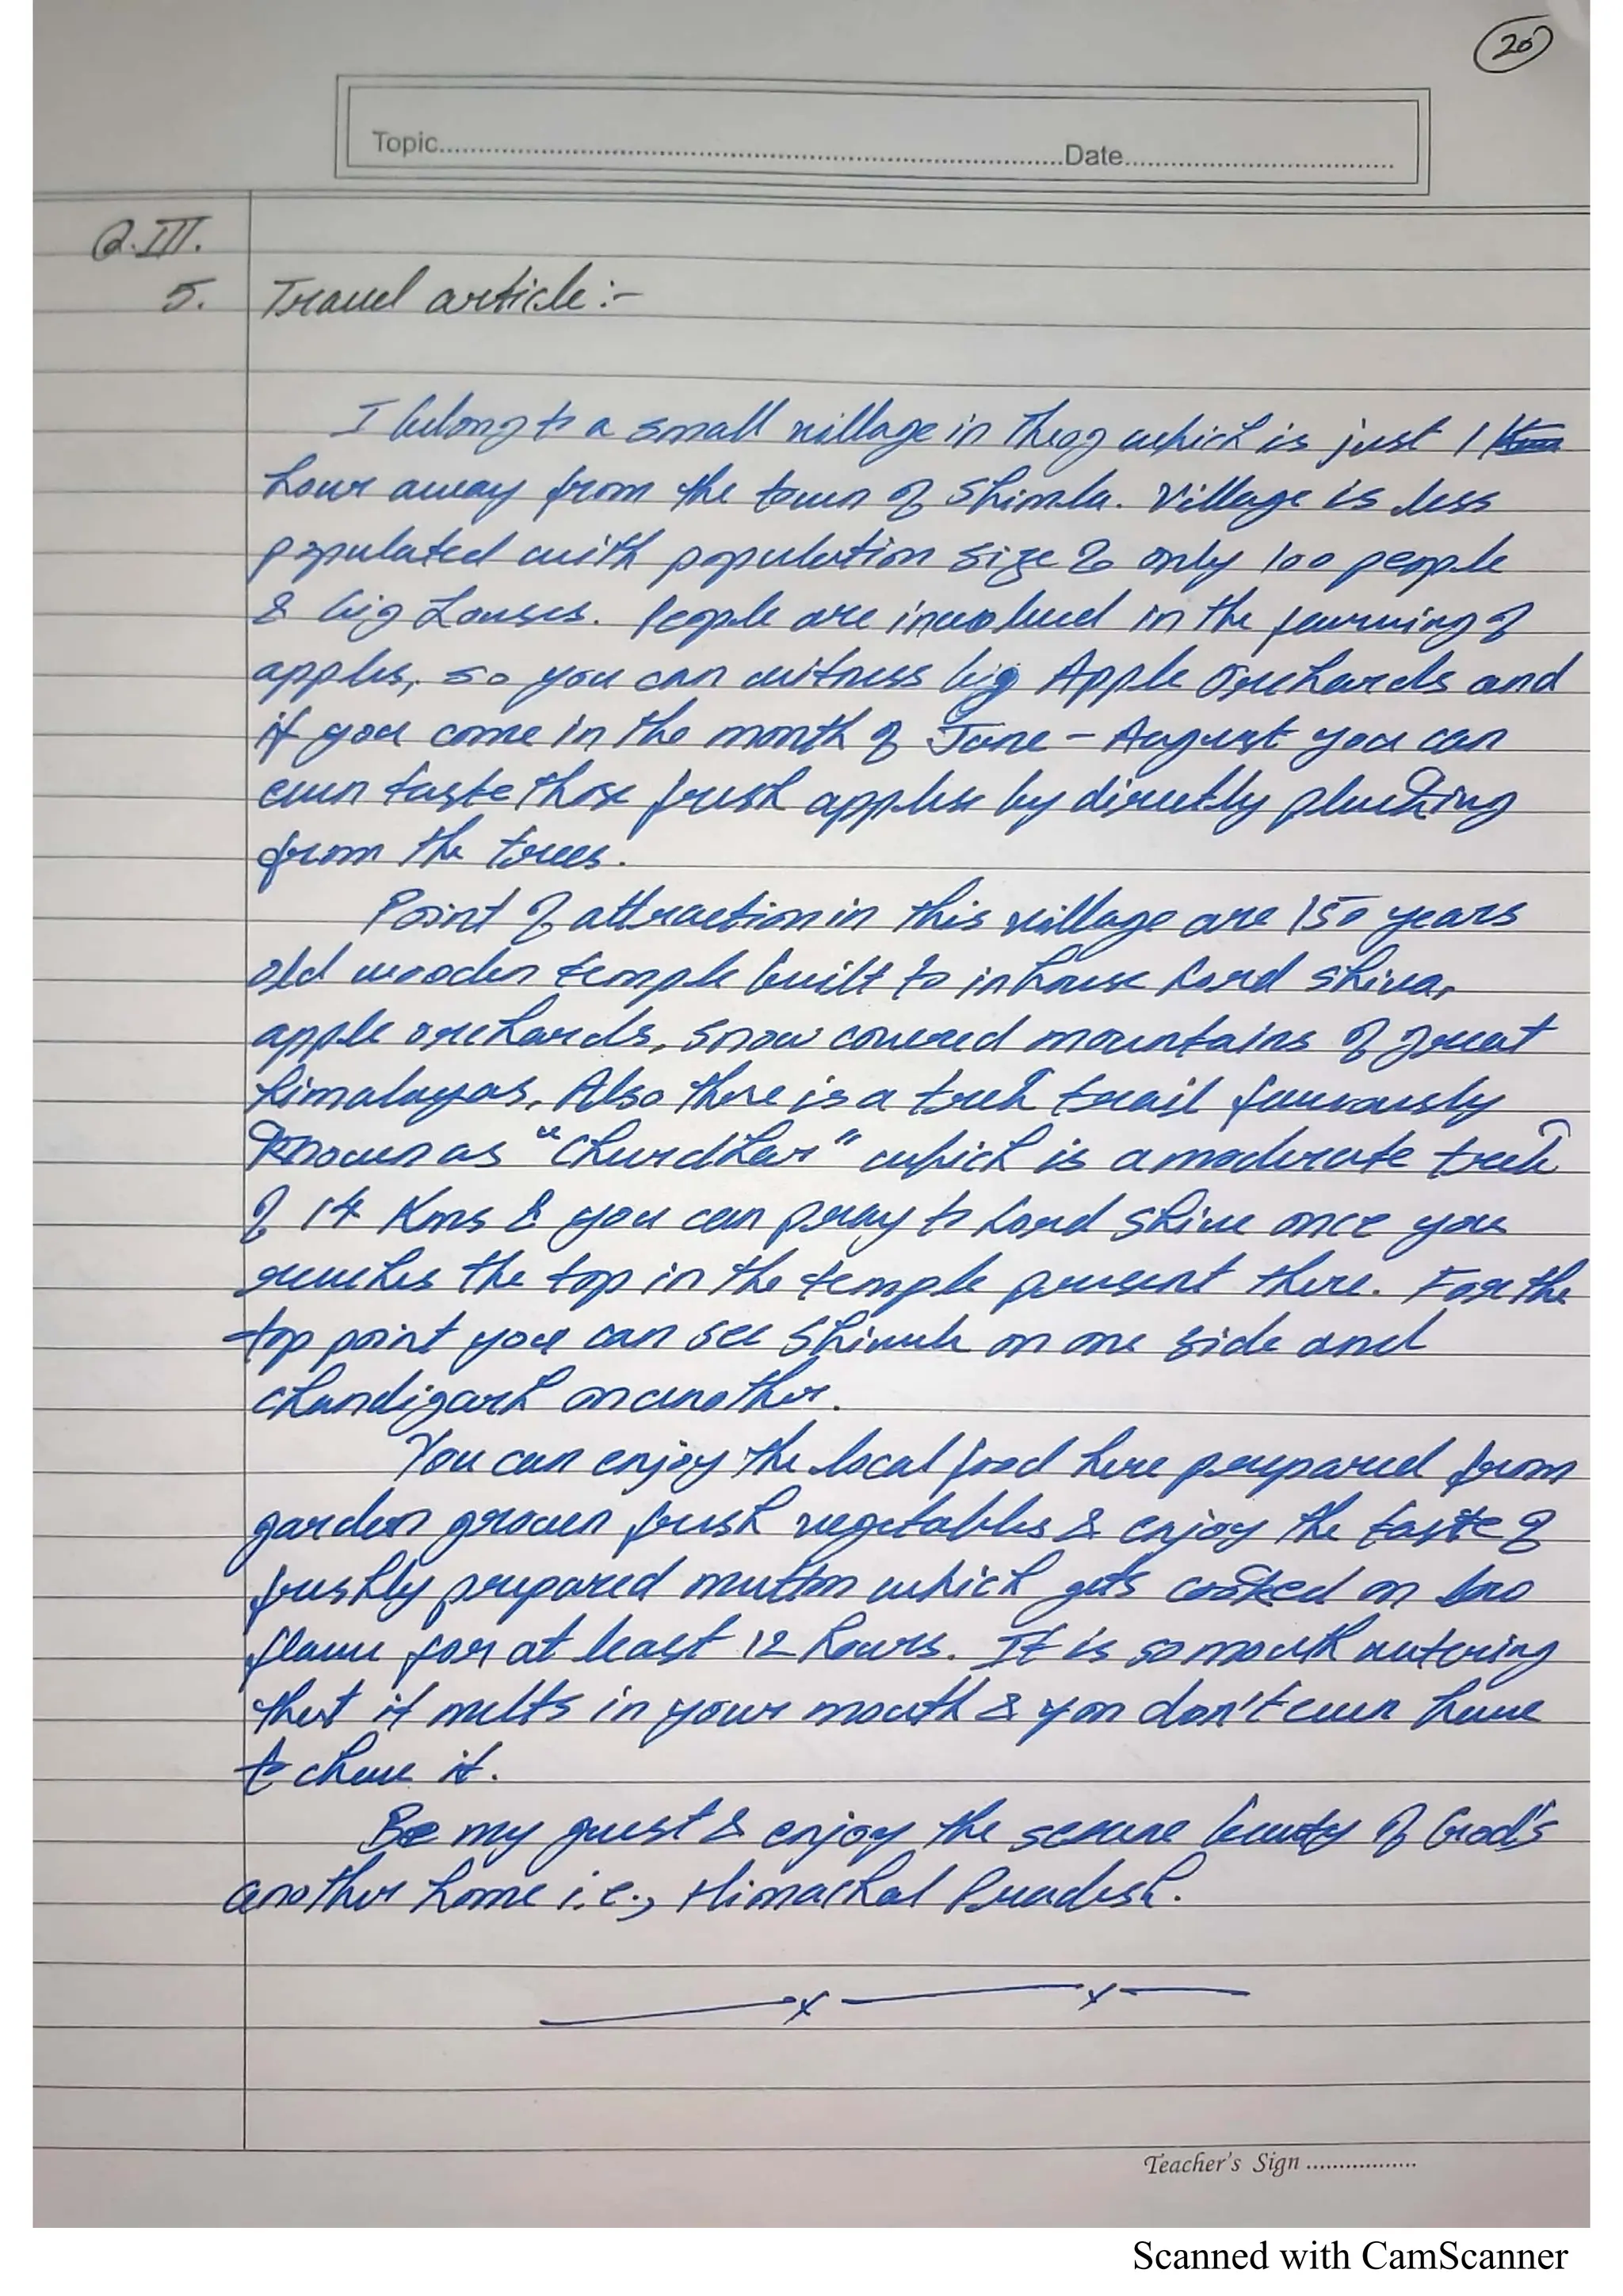 20
Topic..........Date..........
Q.III.
5. Travel article :-
I belong to a small village in Theog which is just 1
hour away from the town of Shimla. Village is less
populated with population size of only 100 people
& big houses. People are involved in the farming of
apples, so you can witness big Apple Orchards and
if you come in the month of June - August you can
even taste those fresh apples by directly plucking
from the trees.
Point of attraction in this village are 150 years
old wooden temple built to inhouse Lord Shiva,
apple orchards, snow covered mountains of great
himalayas, Also there is a trek trail famously
known as "Churdhar" which is a moderate trek
of 14 Kms & you can pray to Lord Shiva once you
reaches the top in the temple present there. For the
top point you can see Shimla on one side and
Chandigarh on another.
You can enjoy the local food here prepared from
garden grown fresh vegetables & enjoy the taste of
freshly prepared mutton which gets cooked on low
flame for at least 12 hours. It is so mouth watering
that it melts in your mouth & you don't even have
to chew it.
Be my guest & enjoy the serene beauty of God's
another home i.e., Himachal Pradesh.
Teacher's Sign ..................
Scanned with CamScanner